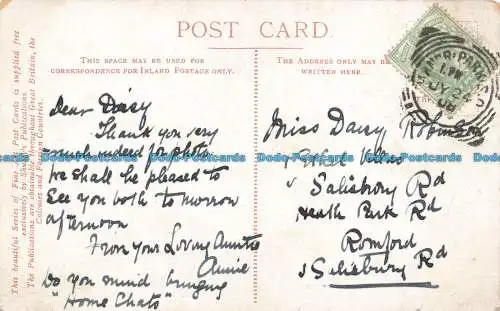 POST CARD.
THIS SPACE MAY BE USED FOR
CORRESPONDENCE FOR INLAND POSTAGE ONLY.
THE ADDRESS ONLY MAY BE
WRITTEN HERE.
This beautiful Series of Fine Art Post Cards is supplied free
exclusively by Shurey's Publications.
The Publications are obtainable throughout Great Britain, the
Colonies and Foreign Countries.
Dear Daisy
Thank you very
much indeed for photo
We shall be pleased to
See you both to morrow
afternoon
From your Loving Auntie
Annie
Do you mind bringing
"Home Chats"
Miss Daisy Robinson
Salisbury Rd
Heath Park Rd
Romford
Salisbury Rd
Dodo-Postcards Dodo-Postcards Dodo-Postcards Dodo-Postcards